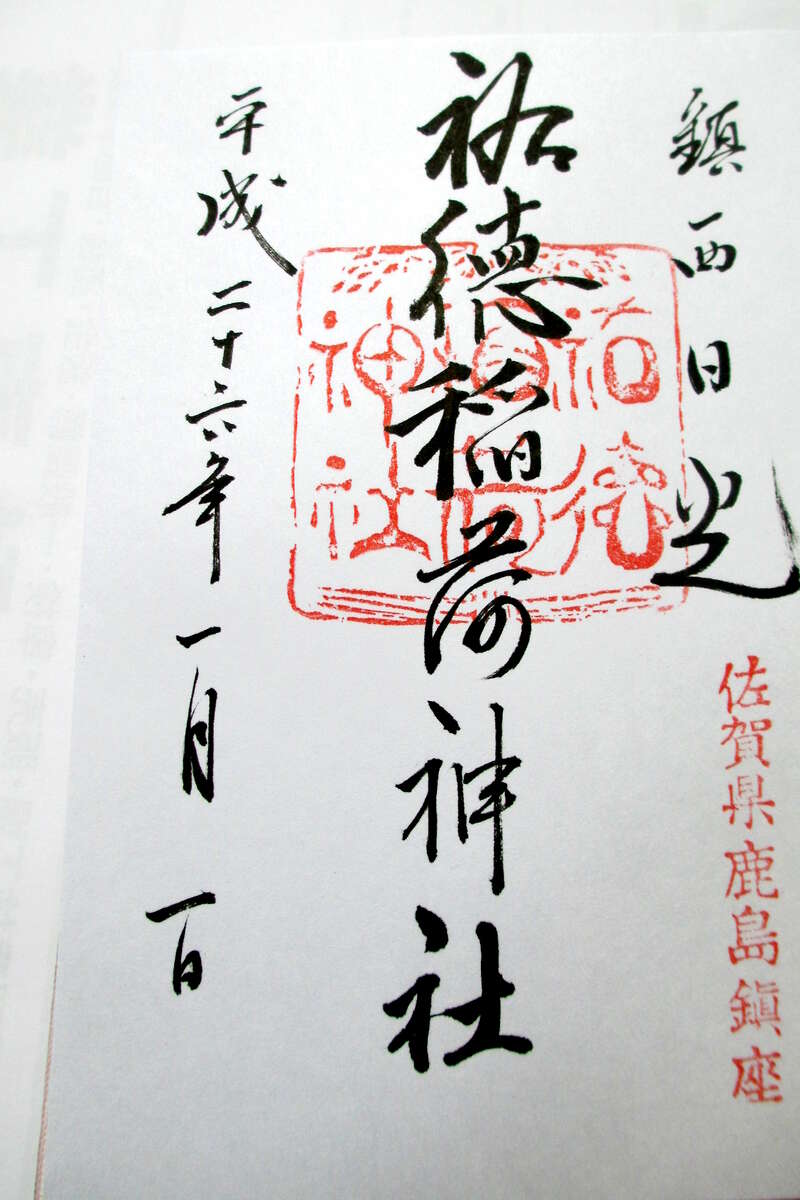 鎮西日光
佐賀県鹿島鎮座
祐徳稲荷神社
祐徳稲荷神社
平成二十六年一月一日